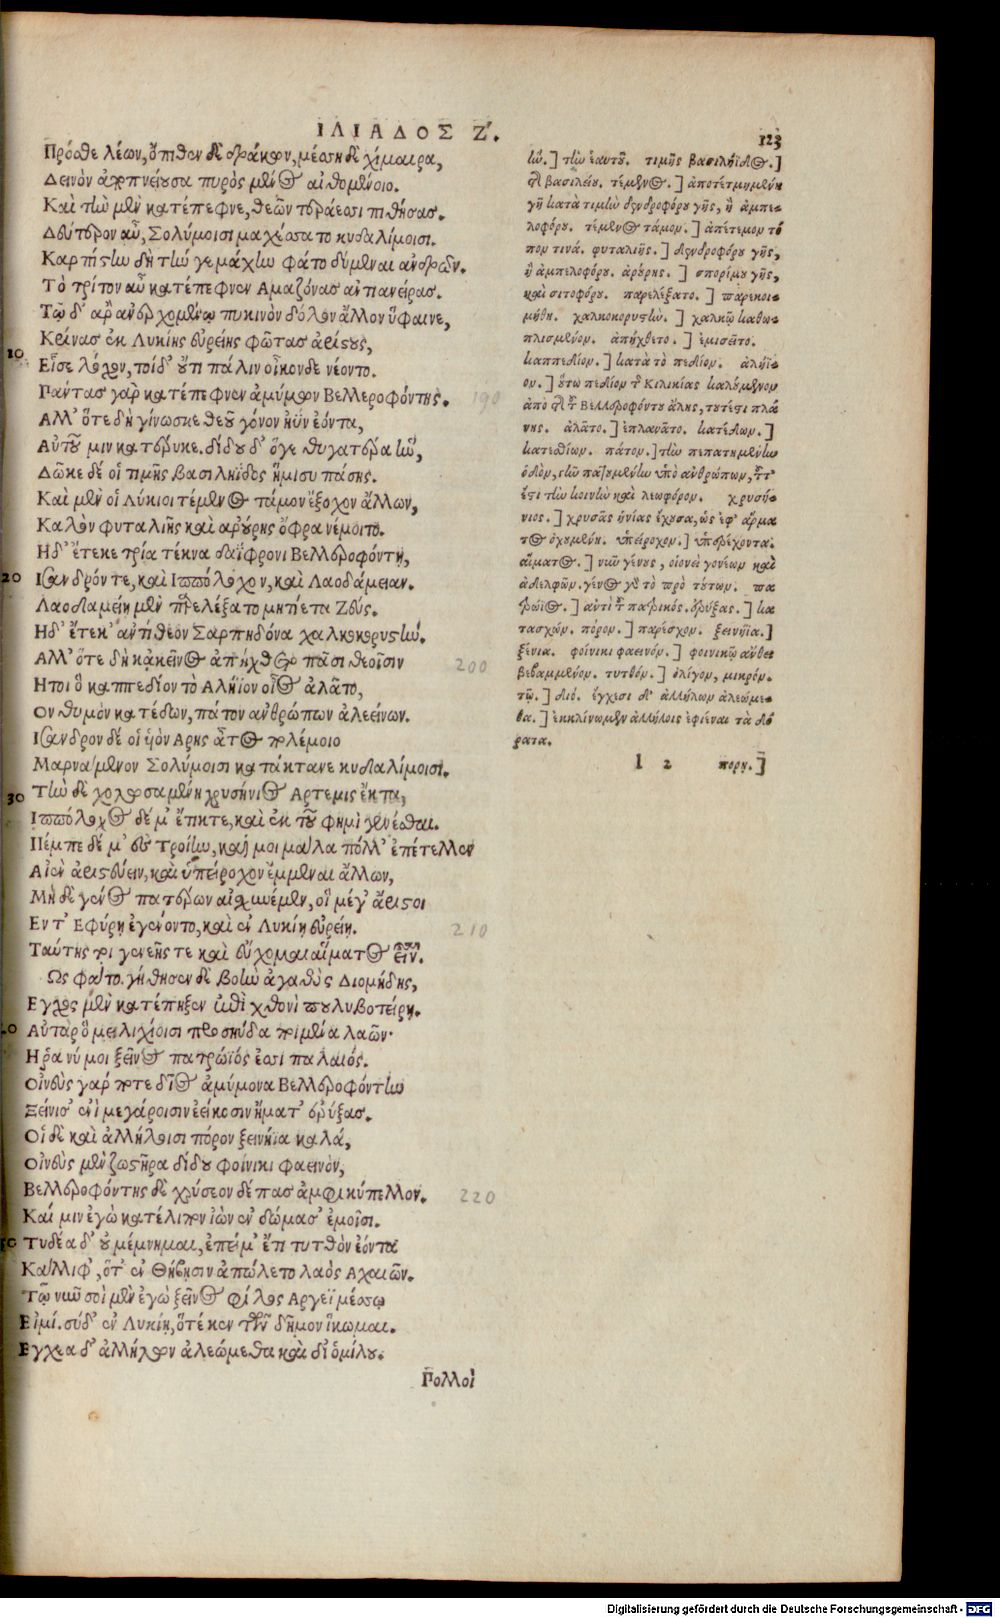 ΙΛΙΑΔΟΣ Ζ'.
123
Πρόσθε λέων, ὄπιθεν δὲ δράκων, μέσση δὲ χίμαιρα,
Δεινὸν ἀποπνείουσα πυρὸς μένος αἰθομένοιο.
Καὶ τὴν μὲν κατέπεφνε, θεῶν τεράεσσι πιθήσας.
Δεύτερον αὖ, Σολύμοισι μαχέσσατο κυδαλίμοισι.
Καρτίστην δὴ τήν γε μάχην φάτο δύμεναι ἀνδρῶν.
Τὸ τρίτον αὖ κατέπεφνεν Αμαζόνας ἀντιανείρας.
Τῷ δ' ἄρ' ἀνερχομένῳ πυκινὸν δόλον ἄλλον ὕφαινε,
Κρίνας ἐκ Λυκίης εὐρείης φῶτας ἀρίστους,
10 Εἷσε λόχον, τοὶ δ' οὔτι πάλιν οἶκονδε νέοντο.
Πάντας γὰρ κατέπεφνεν ἀμύμων Βελλεροφόντης. 190
Αλλ' ὅτε δὴ γίνωσκε θεοῦ γόνον ἠῢν ἐόντα,
Αὐτοῦ μιν κατέρυκε. δίδου δ' ὅγε θυγατέρα ἥν,
Δῶκε δέ οἱ τιμῆς βασιληΐδος ἥμισυ πάσης.
Καὶ μέν οἱ Λύκιοι τέμενος τάμον ἔξοχον ἄλλων,
Καλὸν φυταλιῆς καὶ ἀρούρης ὄφρα νέμοιτο.
Ηδ' ἔτεκε τρία τέκνα δαΐφρονι Βελλεροφόντῃ,
20 Ισανδρόν τε, καὶ Ιππόλοχον, καὶ Λαοδάμειαν.
Λαοδαμείῃ μὲν παρελέξατο μητίετα Ζεύς.
Ηδ' ἔτεκ' ἀντίθεον Σαρπηδόνα χαλκοκορυστήν.
Αλλ' ὅτε δὴ κἀκεῖνος ἀπήχθετο πᾶσι θεοῖσιν 200
Ητοι ὁ καππεδίον τὸ Αλήϊον οἶος ἀλᾶτο,
Ον θυμὸν κατέδων, πάτον ἀνθρώπων ἀλεείνων.
Ισανδρον δέ οἱ υἱὸν Αρης ἆτος πολέμοιο
Μαρνάμενον Σολύμοισι κατάκτανε κυδαλίμοισι.
30 Τὴν δὲ χολωσαμένη χρυσήνιος Αρτεμις ἔκτα,
Ιππόλοχος δέ μ' ἔτικτε, καὶ ἐκ τοῦ φημὶ γενέσθαι.
Πέμπε δέ μ' ἐς Τροίην, καί μοι μάλα πόλλ' ἐπέτελλεν
Αἰὲν ἀριστεύειν, καὶ ὑπείροχον ἔμμεναι ἄλλων,
Μηδὲ γένος πατέρων αἰσχυνέμεν, οἳ μέγ' ἄριστοι
Εν τ' Εφύρῃ ἐγένοντο, καὶ ἐν Λυκίῃ εὐρείῃ. 210
Ταύτης τοι γενεῆς τε καὶ εὔχομαι αἵματος εἶναι.
Ως φάτο. γήθησεν δὲ βοὴν ἀγαθὸς Διομήδης,
Εγχος μὲν κατέπηξεν ἐπὶ χθονὶ πουλυβοτείρῃ.
40 Αὐτὰρ ὁ μειλιχίοισι προσηύδα ποιμένα λαῶν·
Η ῥά νύ μοι ξεῖνος πατρώϊός ἐσσι παλαιός.
Οἰνεὺς γάρ ποτε δῖος ἀμύμονα Βελλεροφόντην
Ξείνισ' ἐνὶ μεγάροισιν ἐείκοσιν ἤματ' ἐρύξας.
Οἱ δὲ καὶ ἀλλήλοισι πόρον ξεινήϊα καλά,
Οἰνεὺς μὲν ζωστῆρα δίδου φοίνικι φαεινὸν,
Βελλεροφόντης δὲ χρύσεον δέπας ἀμφικύπελλον. 220
Καί μιν ἐγὼ κατέλιπον ἰὼν ἐν δώμασ' ἐμοῖσι.
50 Τυδέα δ' οὐ μέμνημαι, ἐπεί μ' ἔτι τυτθὸν ἐόντα
Κάλλιφ', ὅτ' ἐν Θήβῃσιν ἀπώλετο λαὸς Αχαιῶν.
Τῷ νῦν σοὶ μὲν ἐγὼ ξεῖνος φίλος Αργεῒ μέσσῳ
Εἰμί. σὺ δ' ἐν Λυκίῃ, ὅτέ κεν τῶν δῆμον ἵκωμαι.
Εγχεα δ' ἀλλήλων ἀλεώμεθα καὶ δι' ὁμίλου.
Πολλοὶ
ἥν.] τὴν ἑαυτοῦ. τιμῆς βασιληΐδος.]
τῆς βασιλείου. τέμενος.] ἀποτετμημένην
γῆν κατὰ τιμὴν δενδροφόρου γῆς, ἢ ἀμπε-
λοφόρου. τέμενος τάμον.] ἀπέτεμον τό
πον τινά. φυταλιῆς.] δενδροφόρου γῆς,
ἢ ἀμπελοφόρου. ἀρούρης.] σπορίμου γῆς,
καὶ σιτοφόρου. παρελέξατο.] παρεκοι-
μήθη. χαλκοκορυστήν.] χαλκῷ καθω-
πλισμένον. ἀπήχθετο.] ἐμισεῖτο.
καππεδίον.] κατὰ τὸ πεδίον. αλήϊ-
ον.] οὕτω πεδίον τῆς Κιλικίας καλούμενον
ἀπὸ τῆς τοῦ Βελλεροφόντου ἄλης, τουτέστι πλά
νης. ἀλᾶτο.] ἐπλανᾶτο. κατέδων.]
κατεσθίων. πάτον.] τὴν πεπατημένην
ὁδὸν, τὴν πατουμένην ὑπὸ ἀνθρώπων, τουτ'
ἔστι τὴν κοινὴν καὶ λεωφόρον. χρυσή-
νιος.] χρυσᾶς ἡνίας ἔχουσα, ὡς ἐφ' ἅρμα
τος ὀχουμένη. ὑπείροχον.] ὑπερέχοντα.
αἵματος.] νῦν γένους, οἱονεὶ γονέων καὶ
ἀδελφῶν. γένος γὰρ τὸ πρὸ τούτων. πα
τρώϊος.] ἀντὶ τοῦ πατρικός. ἐρύξας.] κα
τασχών. πόρον.] παρέσχον. ξεινήϊα.]
ξένια. φοίνικι φαεινόν.] φοινικῷ ἄνθει
βεβαμμένον. τυτθόν.] ὀλίγον, μικρόν.
τῷ.] διό. ἔγχεσι δ' ἀλλήλων ἀλεώμε-
θα.] ἐκκλίνωμεν ἀλλήλοις ἐφιέναι τὰ δό
ρατα.
l 2 πορν.]
Digitalisierung gefördert durch die Deutsche Forschungsgemeinschaft - DFG